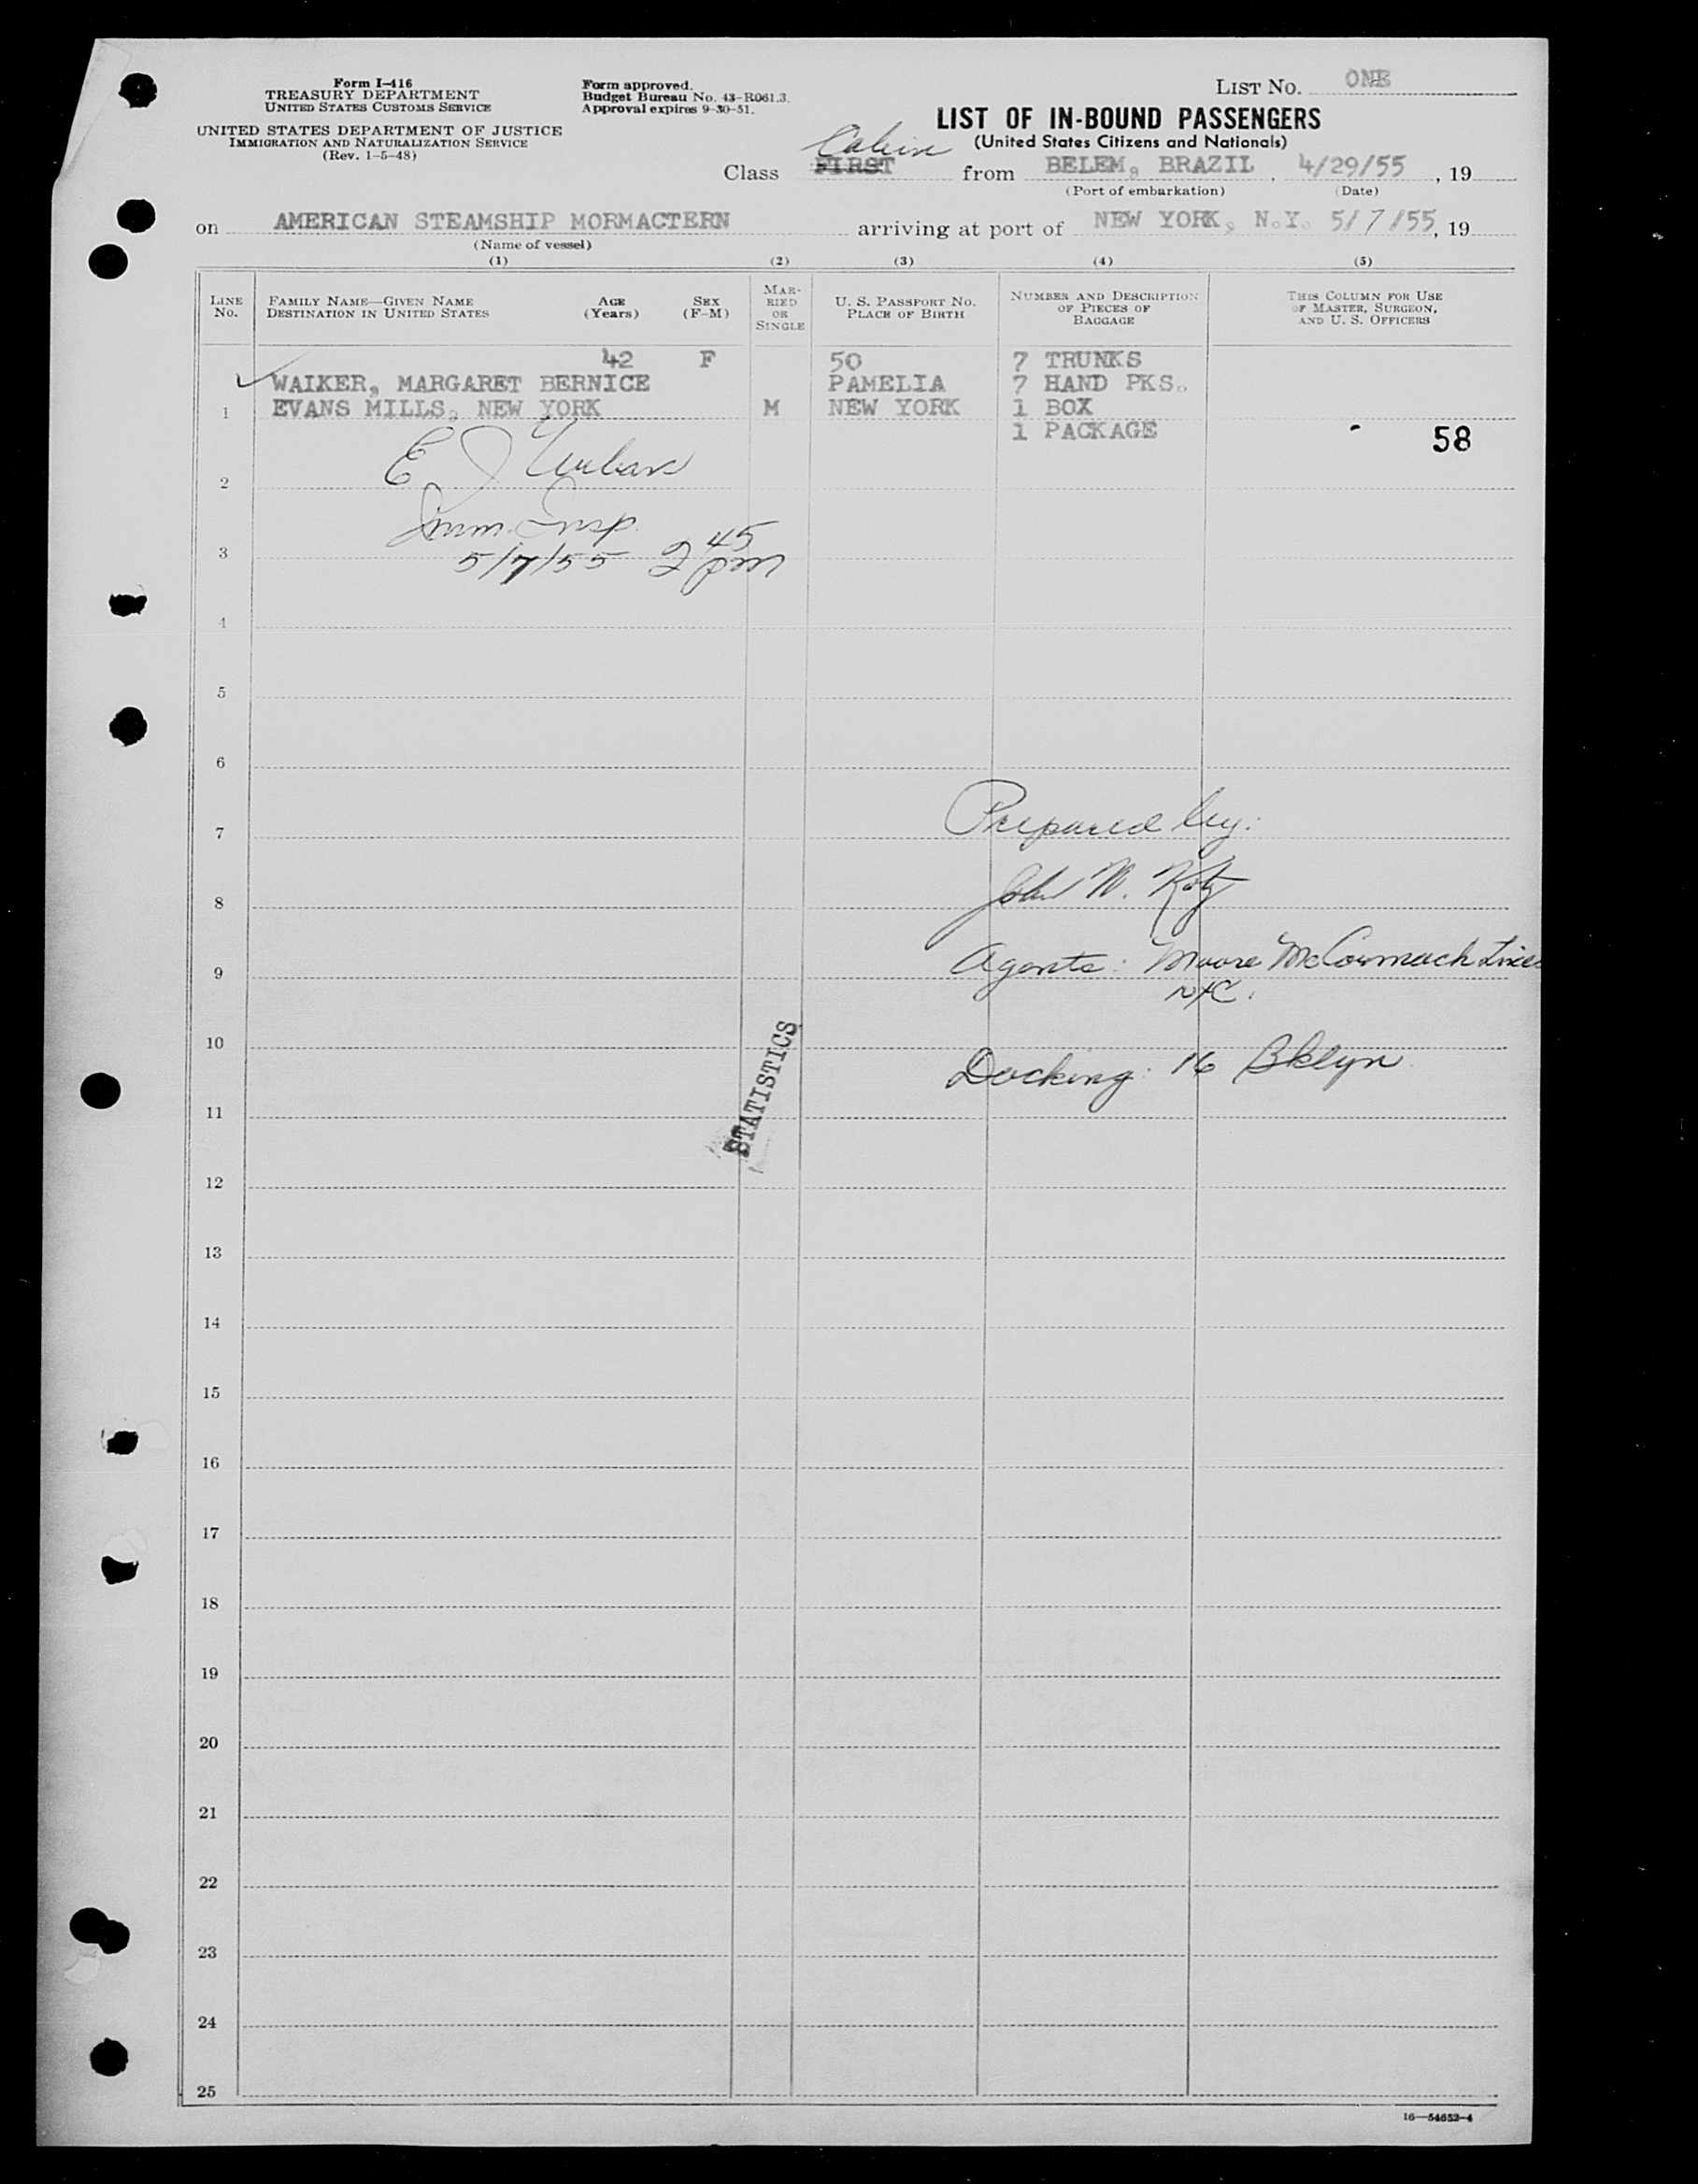 Form I-416
TREASURY DEPARTMENT
UNITED STATES CUSTOMS SERVICE
UNITED STATES DEPARTMENT OF JUSTICE
IMMIGRATION AND NATURALIZATION SERVICE
(Rev. 1-5-48)
Form approved.
Budget Bureau No. 43-R061.3.
Approval expires 9-30-51.
LIST No. ONE
LIST OF IN-BOUND PASSENGERS
(United States Citizens and Nationals)
Cabin
Class FIRST from BELEM, BRAZIL, 4/29/55, 19
(Port of embarkation) (Date)
on AMERICAN STEAMSHIP MORMACTERN arriving at port of NEW YORK, N.Y. 5/7/55, 19
(Name of vessel)
(1) (2) (3) (4) (5)
LINE No.
FAMILY NAME—GIVEN NAME
DESTINATION IN UNITED STATES
AGE (Years)
SEX (F-M)
MARRIED OR SINGLE
U. S. PASSPORT No.
PLACE OF BIRTH
NUMBER AND DESCRIPTION
OF PIECES OF
BAGGAGE
THIS COLUMN FOR USE
OF MASTER, SURGEON,
AND U. S. OFFICERS
42 F 50 7 TRUNKS
WAIKER, MARGARET BERNICE PAMELIA 7 HAND PKS.
1 EVANS MILLS, NEW YORK M NEW YORK 1 BOX
1 PACKAGE
58
E J
2
Imm. Insp.
3 5/7/55 2 45 pm
4
5
6
Prepared by:
7
John W.
8
Agents: Moore McCormack Lines
9
NYC.
10
Docking: 16 Bklyn
11
STATISTICS
12
13
14
15
16
17
18
19
20
21
22
23
24
25
16—54652-4